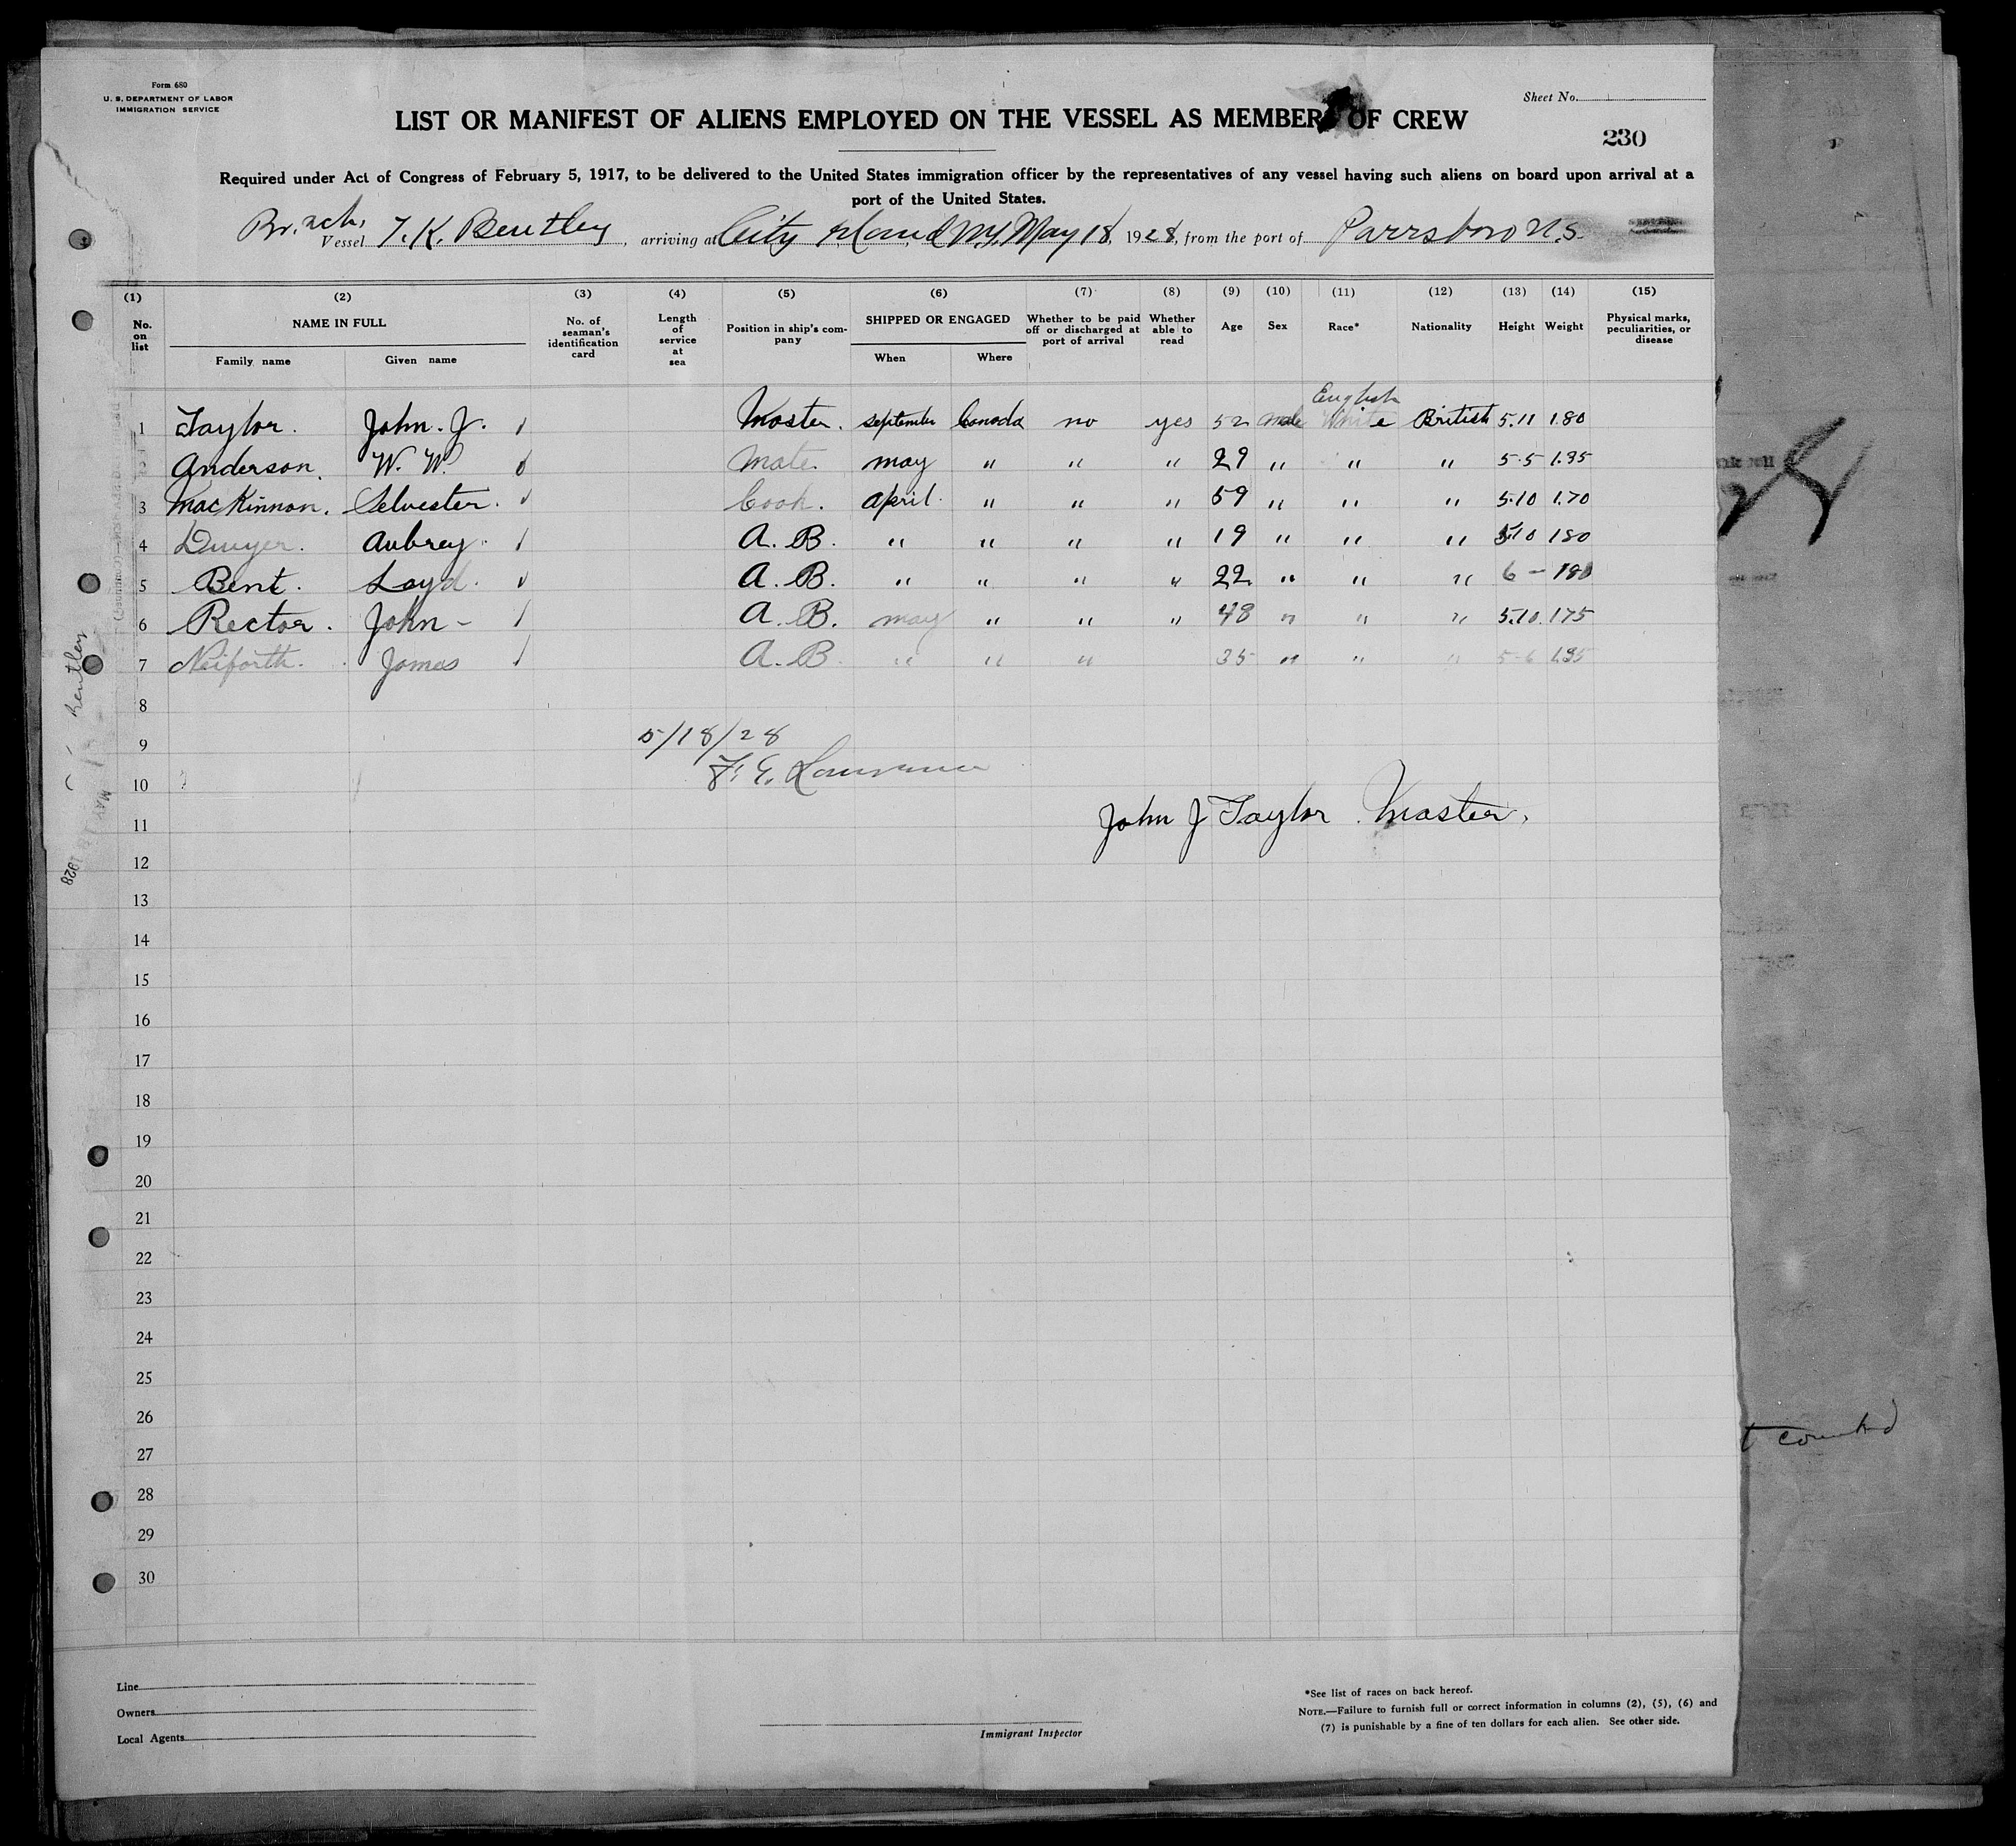 Form 680
U. S. DEPARTMENT OF LABOR
IMMIGRATION SERVICE
Sheet No.
LIST OR MANIFEST OF ALIENS EMPLOYED ON THE VESSEL AS MEMBERS OF CREW
230
Required under Act of Congress of February 5, 1917, to be delivered to the United States immigration officer by the representatives of any vessel having such aliens on board upon arrival at a
port of the United States.
Br. sch. Vessel T. K. Bentley, arriving at City Island NY, May 18, 1928, from the port of Parrsboro N.S.
(1) (2) (3) (4) (5) (6) (7) (8) (9) (10) (11) (12) (13) (14) (15)
No. on list NAME IN FULL Family name Given name No. of seaman's identification card Length of service at sea Position in ship's company SHIPPED OR ENGAGED When Where Whether to be paid off or discharged at port of arrival Whether able to read Age Sex Race* Nationality Height Weight Physical marks, peculiarities, or disease
English
1 Taylor. John. J. Master. September Canada no yes 52 male White British 5.11 180
2 Anderson. W. W. Mate. may " " " 29 " " " 5.5 1.35
3 MacKinnon. Selvester. Cook. April. " " " 59 " " " 5.10 1.70
4 Dwyer. Aubrey. A. B. " " " " 19 " " " 5.10 180
5 Bent. Loyd. A. B. " " " " 22 " " " 6 - 180
6 Rector. John - A. B. may " " " 48 " " " 5.10. 175
7 Neiforth. James A. B. " " " 35 " " " 5-6 1.35
8
5/18/28
9
F. E. Lawrence
10
John J Taylor Master.
11
12
13
14
15
16
17
18
19
20
21
22
23
24
25
26
27
28
29
30
Bentley
1928
t counted
Line
Owners
Local Agents
Immigrant Inspector
*See list of races on back hereof.
NOTE.—Failure to furnish full or correct information in columns (2), (5), (6) and
(7) is punishable by a fine of ten dollars for each alien. See other side.